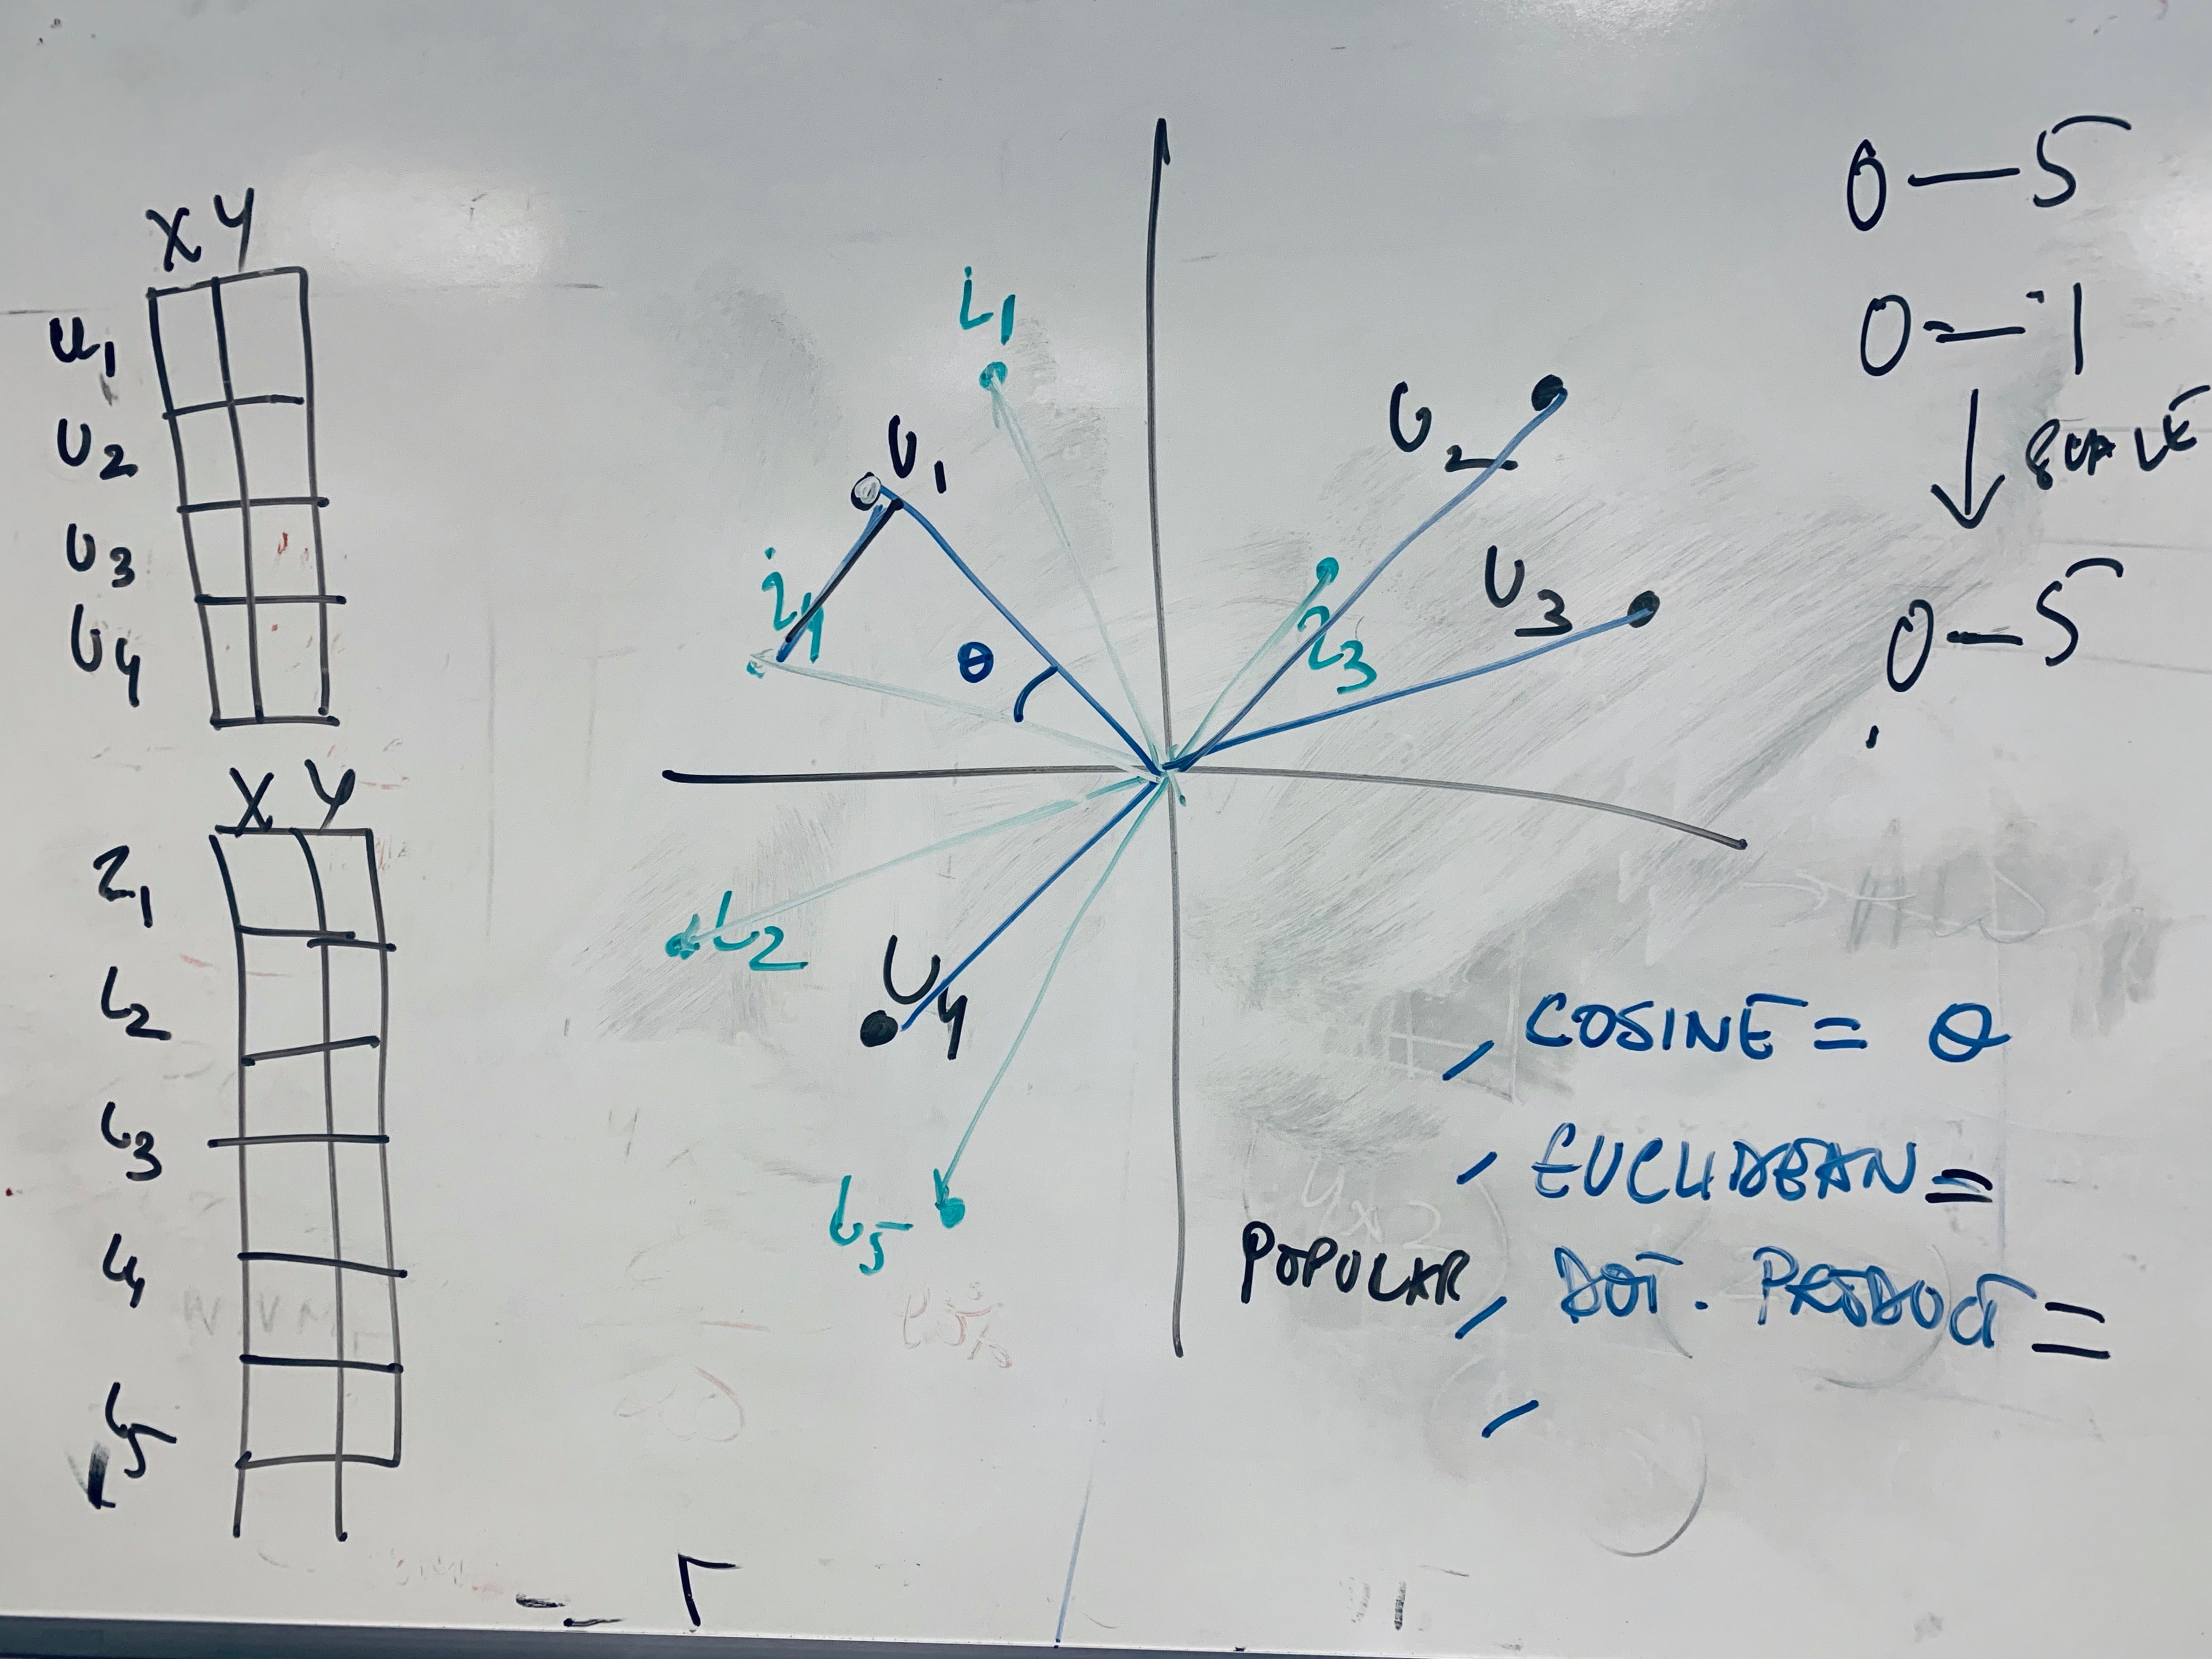 X Y
U1
U2
U3
U4
X Y
i1
i2
i3
i4
i5
i1
U1
i4
θ
U2
i3
U3
i2
U4
i5
0—5
0—1
0—5
COSINE = θ
EUCLIDEAN =
POPULAR, DOT. PRODUCT =